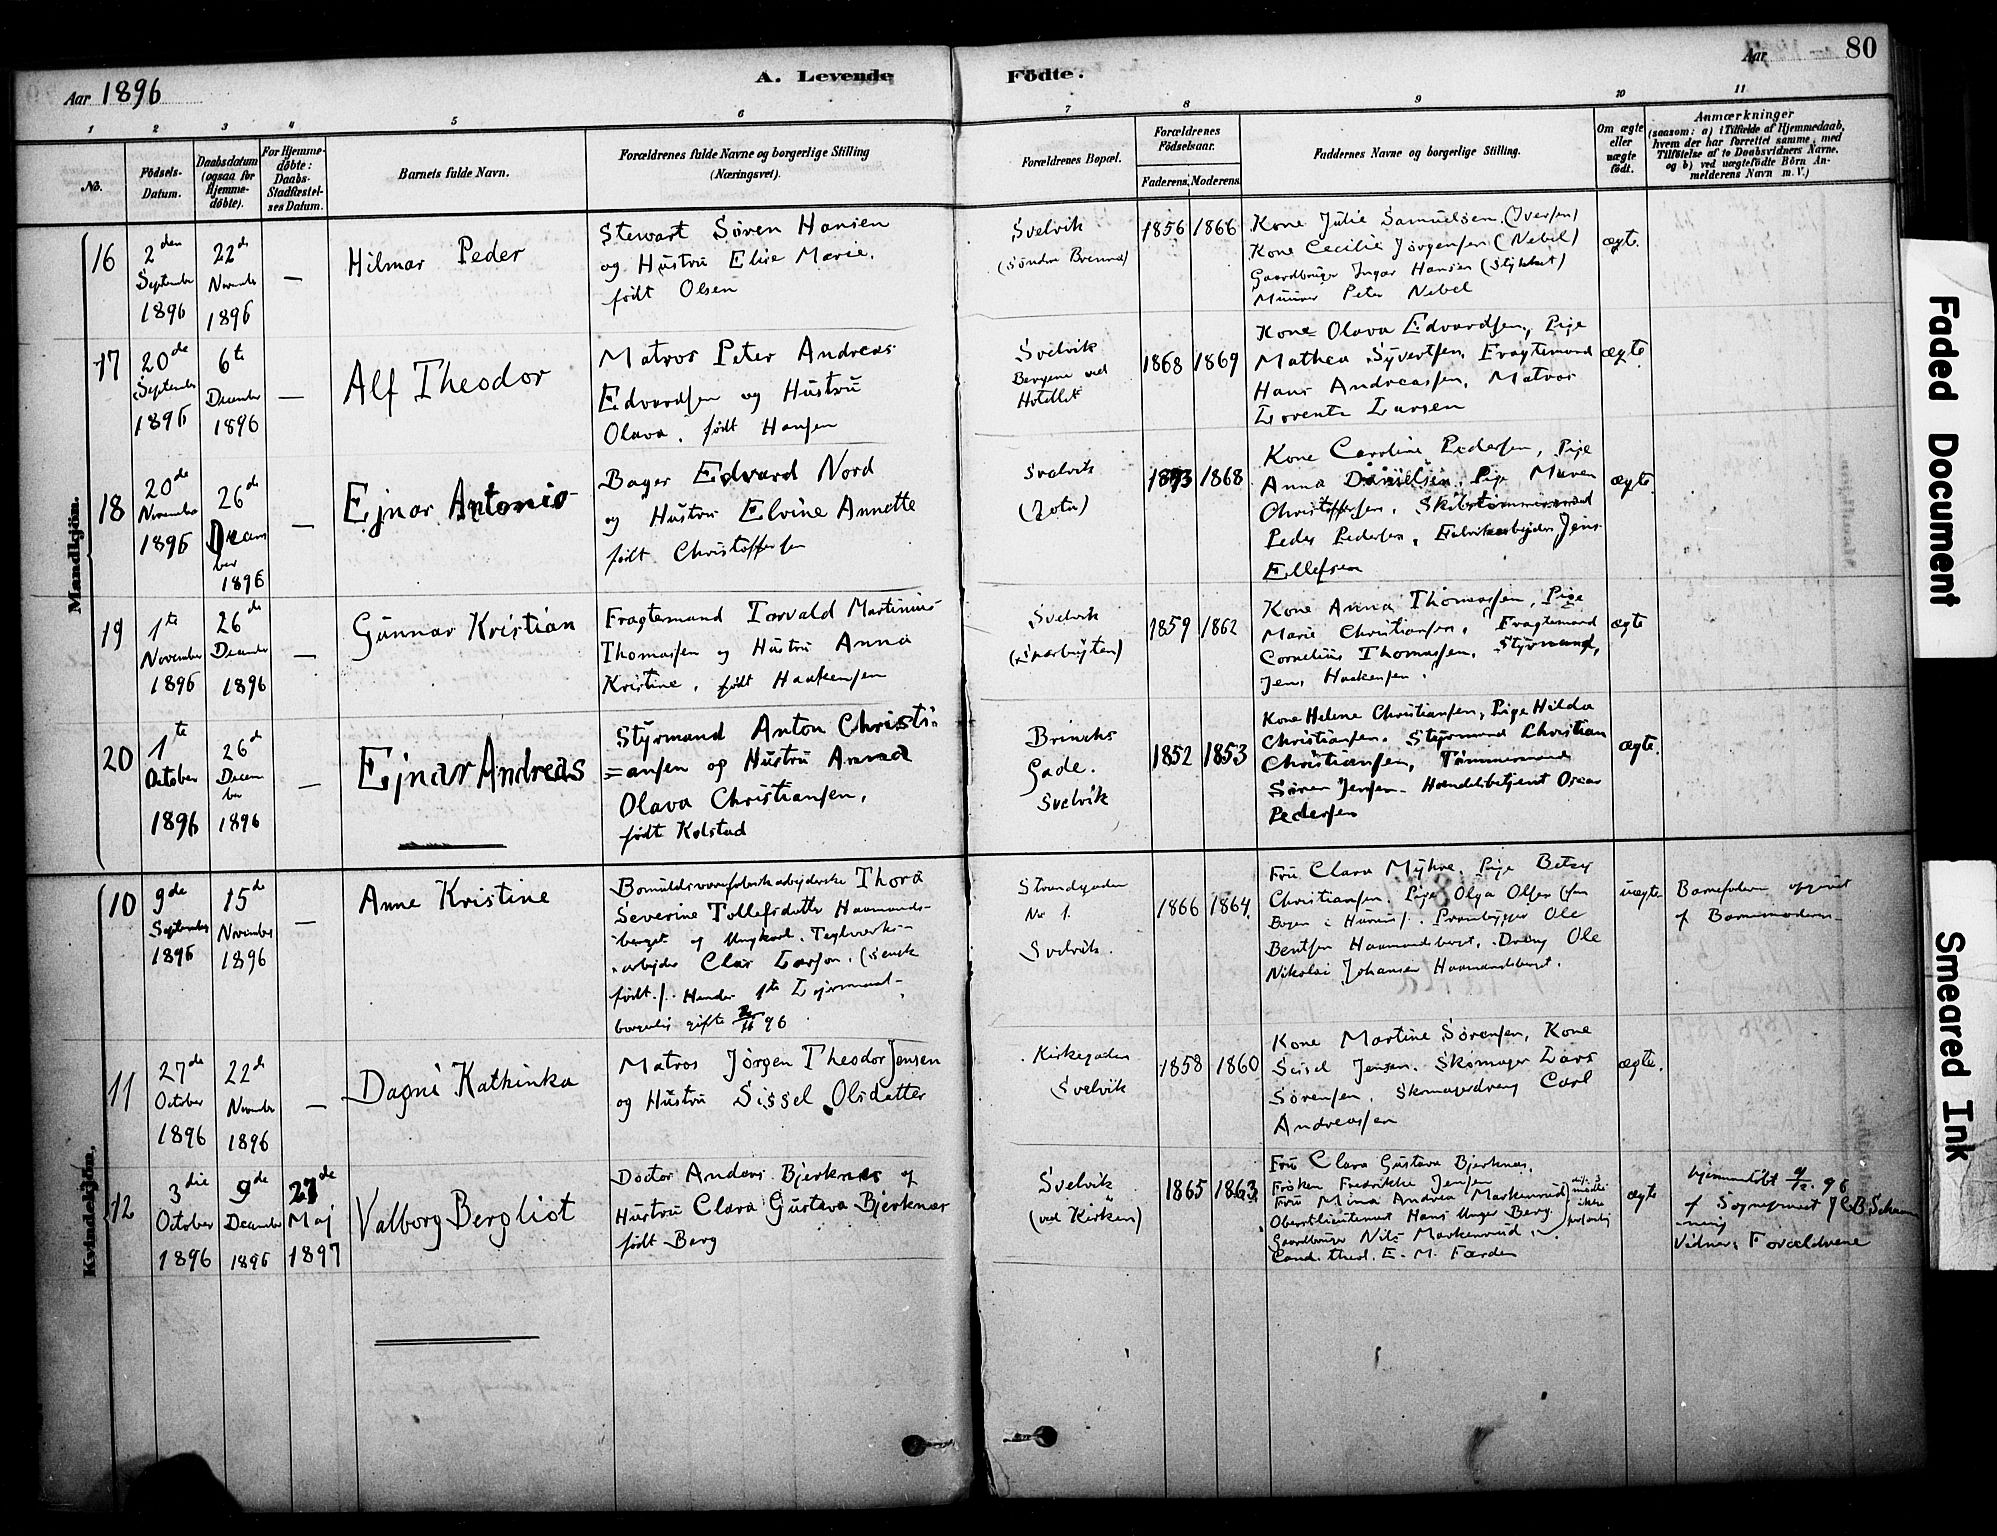 80
Aar 1896
A. Levende
Födte.
Aar
1 2 3 4 5 6 7 8 9 10 11
No.
Födsels-
Datum.
Daabsdatum
(ogsaa for
Hjemme-
döbte).
For Hjemme-
döbte:
Daabs-
Stadfæstel-
ses Datum.
Barnets fulde Navn.
Forældrenes fulde Navne og borgerlige Stilling
(Næringsvei).
Forældrenes Bopæl.
Forældrenes
Födselsaar.
Faderens. Moderens.
Faddernes Navne og borgerlige Stilling.
Om ægte
eller
uægte
födt.
Anmærkninger
(saasom: a) i Tilfælde af Hjemmedaab,
hvem der har forrettet samme, med
Tilföielse af to Daabsvidners Navne,
og b) ved uægtefödte Börn An-
melderens Navn m. V.)
Mandkjön.
16
2den
September
1896
22de
November
1896
—
Hilmar Peder
Stewart Søren Hansen
og Hustru Elise Marie,
født Olsen
Svelvik
(Søndre Brenna)
1856 1866
Kone Julie Samuelsen (Iversen)
Kone Cecilie Jørgensen (Nebel)
Gaardbruger Ingar Hansen (Stykket)
Murer Peter Nebel
ægte.
17
20de
September
1896
6te
December
1896
—
Alf Theodor
Matros Peter Andreas
Edvardsen og Hustru
Olava, født Hansen
Svelvik
Bergene ved
Hotellet
1868 1869
Kone Olava Edvardsen, Pige
Mathea Syvertsen, Fragtemand
Hans Andreassen, Matros
Lorents Larsen
ægte.
18
20de
November
1896
26de
Decem
ber
1896
—
Ejnar Antonio
Bager Edvard Nord
og Hustru Elvine Annette
født Christoffersen
Svelvik
1873 1868
Kone Caroline Pedersen, Pige
Anna Danielsen, Pige Maren
Christoffersen, Skibstømmermand
Peder Pedersen, Fabrikarbejder Jens
Ellefsen
ægte.
19
1te
November
1896
26de
December
1896
—
Gunnar Kristian
Fragtemand Torvald Martinius
Thomassen og Hustru Anna
Kristine, født Haakensen
Svelvik
1859 1862
Kone Anna Thomassen, Pige
Marie Christiansen, Fragtemand
Cornelius Thomassen, Styrmand,
Jens Haakensen.
ægte
20
1te
October
1896
26de
Decem
ber
1896
—
Ejnar Andreas
Styrmand Anton Christi=
=ansen og Hustru Anna
Olava Christiansen,
født Kolstad
Brinchs
Gade.
Svelvik
1852 1853
Kone Helene Christiansen, Pige Hilda
Christiansen, Styrmand Christian
Christiansen, Tømmermand
Søren Jensen. Handelsbetjent Oscar
Pedersen
ægte.
Kvindekjön.
10
9de
September
1896
15de
November
1896
—
Anne Kristine
Bomuldsvarefabrikarbejderske Thora
Severine Tollefsdatter Haamands-
berget og Ungkarl. Teglverks-
arbejder Clas Larson. (svensk
født). Hendes 1te Lejermaal-
borgerlig gifte 96
Strandgaden
No 1.
Svelvik.
1866 1864.
Fru Clara Myhre, Pige Betsy
Christiansen, Pige Olga Olsen
Prambygger Ole
Bentsen Haamandsberget. Dreng Ole
Nikolai Johansen Haamandsberget.
uægte
Barnefaderen opgivet
af Barnemoderen
11
27de
October
1896
22de
November
1896
—
Dagni Kathinka
Matros Jørgen Theodor Jensen
og Hustru Sissel Olsdatter
Kirkegaden
Svelvik
1858 1860
Kone Martine Sørensen, Kone
Sissel Jensen. Skomager Lars
Sørensen, Skomagerdreng Carl
Andreassen
ægte.
12
3die
October
1896
9de
December
1896
27de
Maj
1897
Valborg Bergliot
Doctor Anders Bjerknes og
Hustru Clara Gustava Bjerknes
født Berg
Svelvik
(ved Kirken)
1865 1863
Fru Clara Gustava Bjerknes,
Frøken Fredrikke Jensen
Fru Mina Andrea Markenrud
Oberstlieutenant Hans Unger Berg.
Gaardbruger Nils Markenrud
Cand. theol. E. M. Færden
ægte
hjemmedøbt 9/12 96
af Sogneprest J C B Schann
ning
Vidner: Forældrene
Faded Document
Smeared Ink